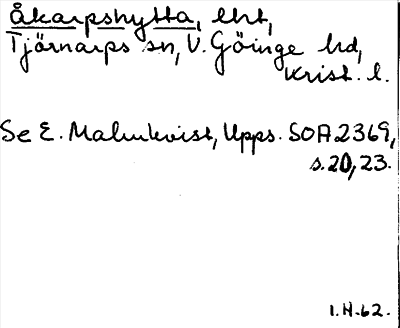 Åkarpshytta, lht,
Tjörnarps sn, V. Göinge hd,
Krist. l.
Se E. Malmkvist, Upps. SOA 2369,
s. 20, 23.
I. H-62.